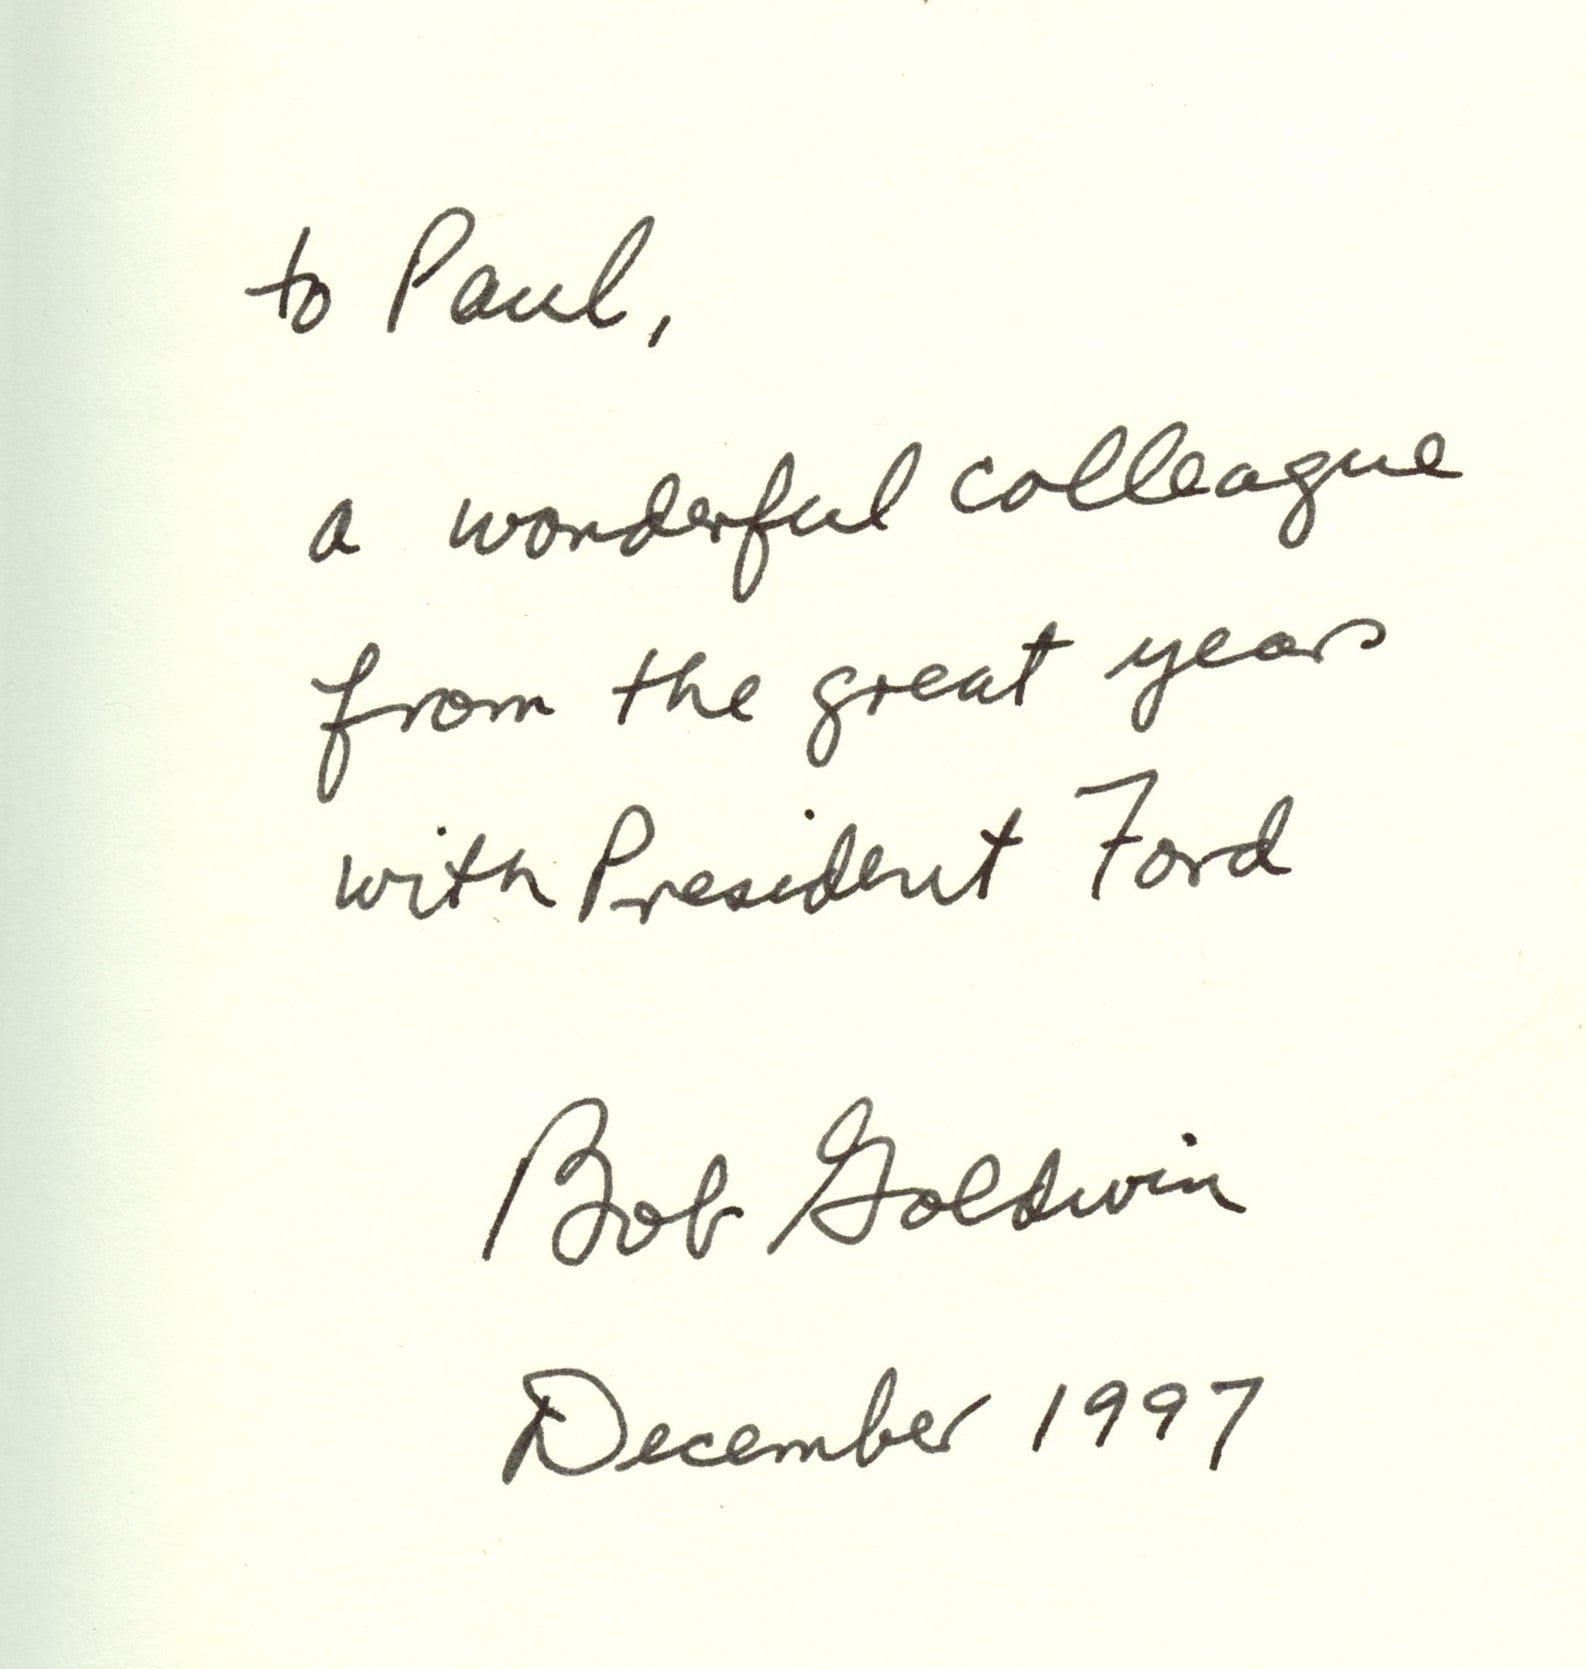 to Paul,
a wonderful colleague
from the great years
with President Ford
Bob Goldwin
December 1997